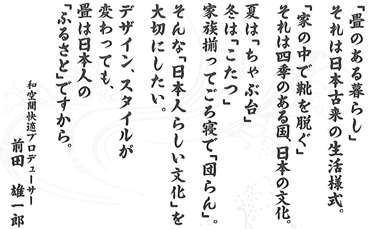 「畳のある暮らし」
それは日本古来の生活様式。
「家の中で靴を脱ぐ」
それは四季のある国、日本の文化。
夏は「ちゃぶ台」
冬は「こたつ」
家族揃ってごろ寝で「団らん」。
そんな「日本人らしい文化」を
大切にしたい。
デザイン、スタイルが
変わっても、
畳は日本人の
「ふるさと」ですから。
和空間快適プロデューサー
前田 雄一郎